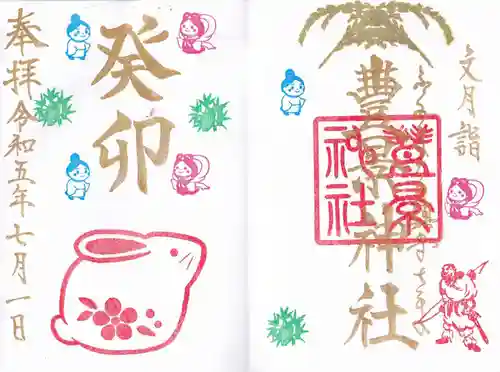 文月詣
豊景神社
豊景神社
癸卯
奉拝令和五年七月一日